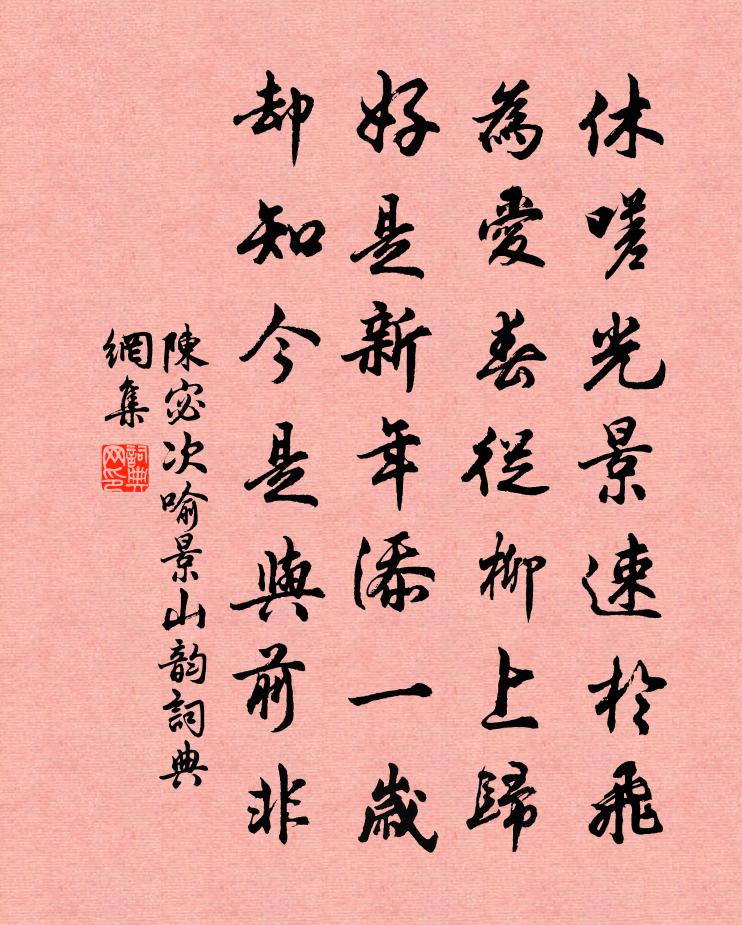 休嗟光景速於飛
為愛春從柳上歸
好是新年添一歲
却知今是與前非
陳宓次喻景山韵詞典
網集
詞典网印